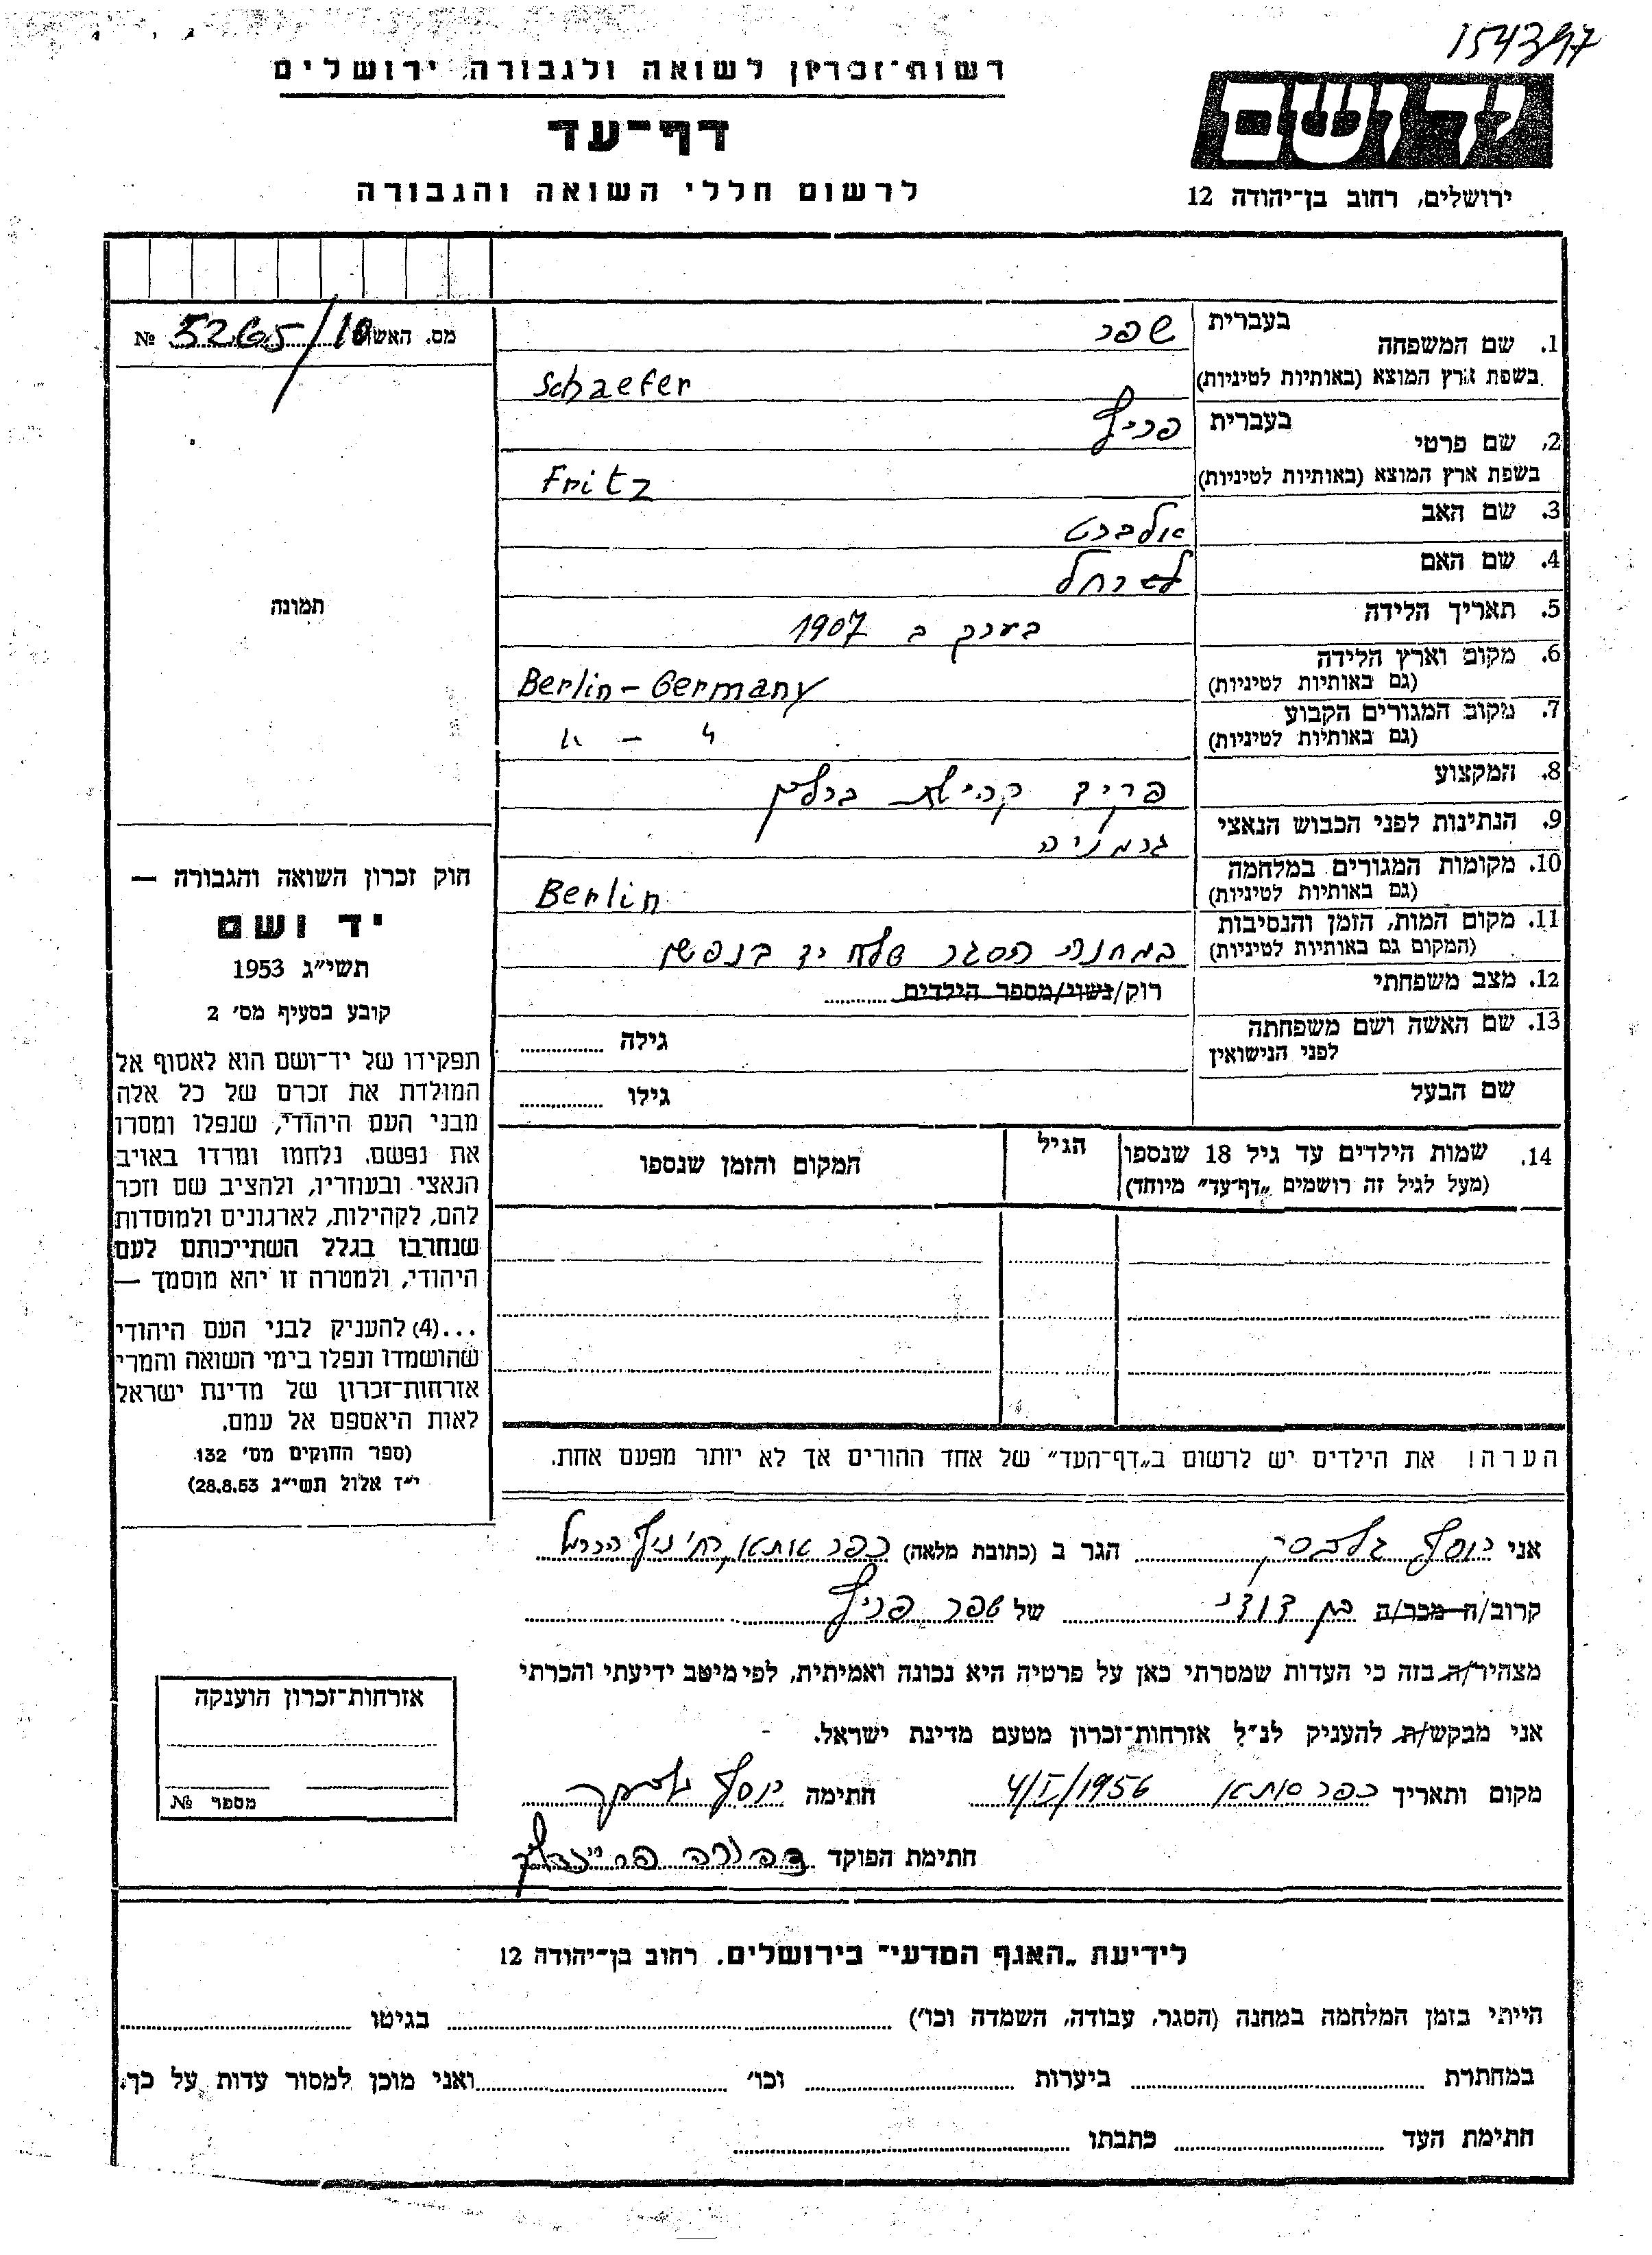 154397
רשות־זכרון לשואה ולגבורה ירושלים
דף־עד
לרשום חללי השואה והגבורה
ידושם
ירושלים, רחוב בן־יהודה 12
מס. האשה 5265/10 №
1. שם המשפחה בעברית שפר
בשפת ארץ המוצא (באותיות לטיניות) Schaefer
2. שם פרטי בעברית פריץ
בשפת ארץ המוצא (באותיות לטיניות) Fritz
3. שם האב אלברט
4. שם האם רחל
5. תאריך הלידה בערך ב 1907
6. מקום וארץ הלידה
(גם באותיות לטיניות) Berlin - Germany
7. מקום המגורים הקבוע
(גם באותיות לטיניות) " - "
8. המקצוע פקיד קהילת ברלין
9. הנתינות לפני הכבוש הנאצי גרמניה
10. מקומות המגורים במלחמה
(גם באותיות לטיניות) Berlin
11. מקום המות, הזמן והנסיבות
(המקום גם באותיות לטיניות) במחנה הסגר שלח יד בנפשו
12. מצב משפחתי רוק/נשוי/מספר הילדים
13. שם האשה ושם משפחתה
לפני הנישואין גילה
שם הבעל גילו
14. שמות הילדים עד גיל 18 שנספו הגיל המקום והזמן שנספו
(מעל לגיל זה רושמים „דף־עד” מיוחד)
הערה! את הילדים יש לרשום ב„דף־העד” של אחד ההורים אך לא יותר מפעם אחת.
תמונה
חוק זכרון השואה והגבורה —
יד ושם
תשי״ג 1953
קובע בסעיף מס׳ 2
תפקידו של יד־ושם הוא לאסוף אל
המולדת את זכרם של כל אלה
מבני העם היהודי, שנפלו ומסרו
את נפשם, נלחמו ומרדו באויב
הנאצי ובעוזריו, ולהציב שם וזכר
להם, לקהילות, לארגונים ולמוסדות
שנחרבו בגלל השתייכותם לעם
היהודי, ולמטרה זו יהא מוסמך —
...(4) להעניק לבני העם היהודי
שהושמדו ונפלו בימי השואה והמרי
אזרחות־זכרון של מדינת ישראל
לאות היאספם אל עמם.
(ספר החוקים מס׳ 132
י״ז אלול תשי״ג 28.8.53)
אני יוסף הגר ב (כתובת מלאה) כפר אתא, רח׳ נוף הכרמל
קרוב/ה מכר/ה בן דודי של שפר פריץ
מצהיר/ה בזה כי העדות שמסרתי כאן על פרטיה היא נכונה ואמיתית, לפי מיטב ידיעתי והכרתי
אני מבקש/ת להעניק לנ״ל אזרחות־זכרון מטעם מדינת ישראל.
מקום ותאריך כפר אתא 4/I/1956 חתימה יוסף
חתימת הפוקד
אזרחות־זכרון הוענקה
מספר №
לידיעת „האגף המדעי” בירושלים. רחוב בן־יהודה 12
הייתי בזמן המלחמה במחנה (הסגר, עבודה, השמדה וכו׳) בגיטו
במחתרת ביערות וכו׳ ואני מוכן למסור עדות על כך.
חתימת העד כתבתו